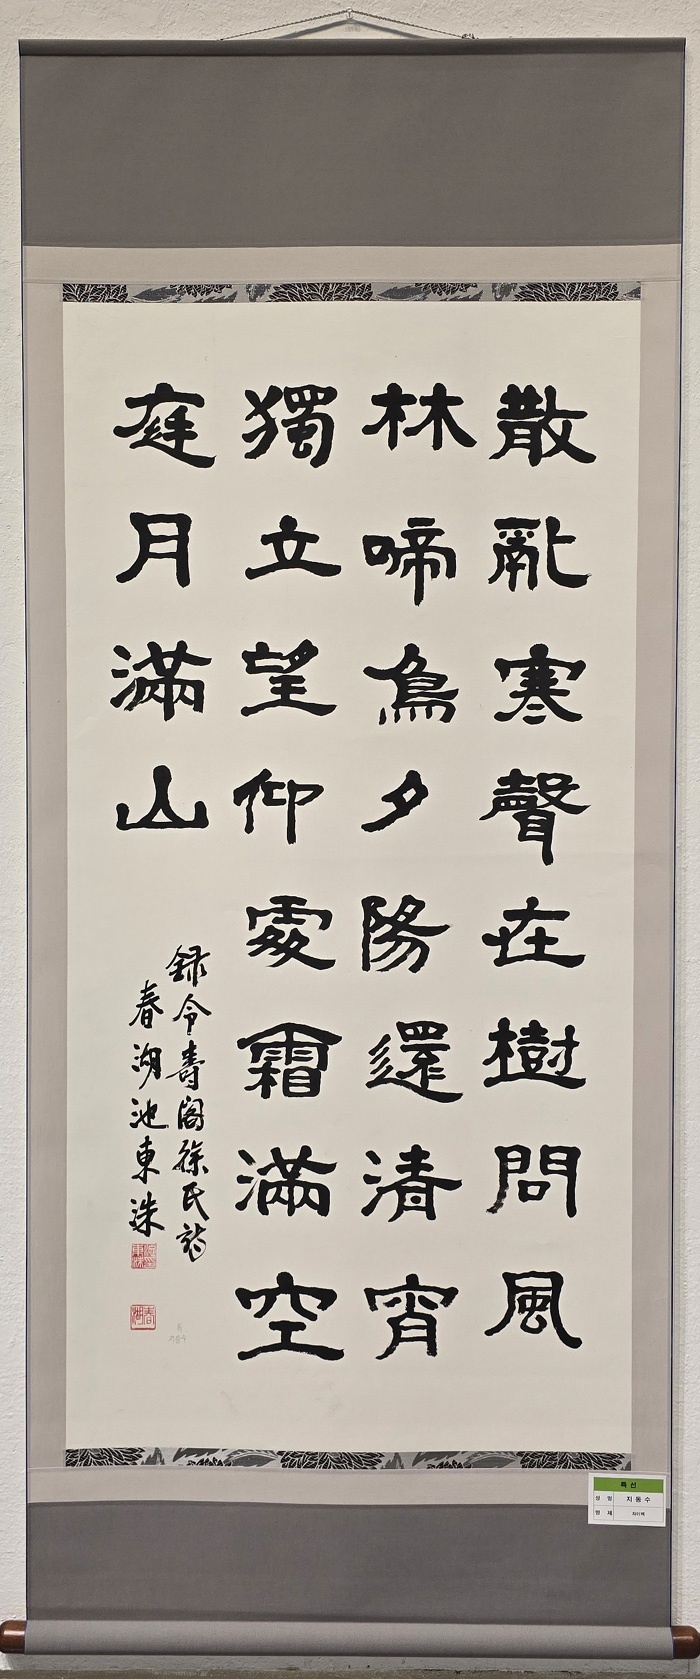 散亂寒聲在樹問風
林啼鳥夕陽還清宵
獨立望仰處霜滿空
庭月滿山
録令壽閣徐氏詩
春湖池東洙
春湖
특선
성명 지동수
명제